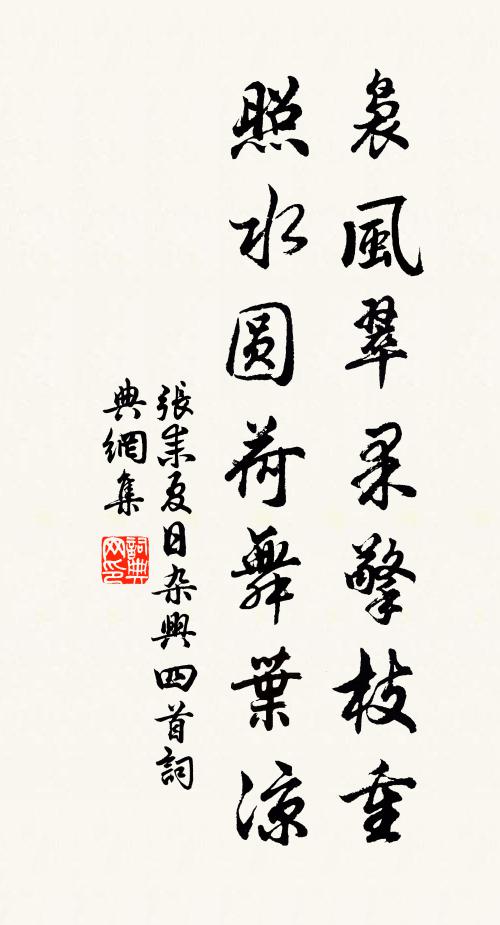 裊風翠果擎枝重
照水圓荷舞葉涼
張耒夏日杂興四首詞
典網集
詞典网印